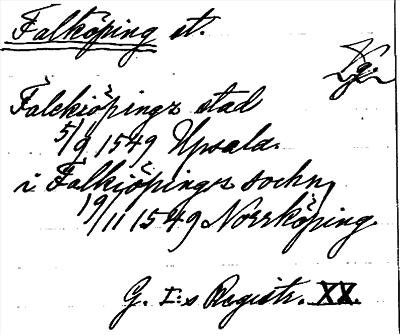 Falköping st.
Vg.
Falckiöpings stad
5/9 1549 Upsala.
i Falkiöpings sochn
19/11 1549 Norrköping.
G. I:s Registr. XX.